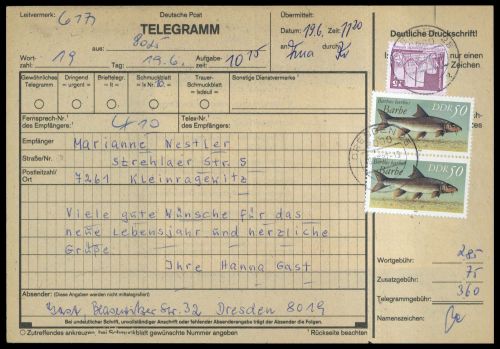 Leitvermerk: 617
Deutsche Post
TELEGRAMM
Übermittelt:
Datum: 19.6. Zeit: 1120
an: durch:
Deutliche Druckschrift!
Wort-
zahl: 19
aus:
Tag: 19.6.
Aufgabe-
zeit: 1015
Zeichen
Gewöhnliches
Telegramm
Dringend
= urgent =
Brieftelegr.
= lt =
Schmuckblatt
= lx Nr. 10 =
Trauer-
Schmuckblatt
= lxdeuil =
Sonstige Dienstvermerke
Fernsprech-Nr.¹
des Empfängers:
Telex-Nr.¹
des Empfängers:
Empfänger Marianne Nestler
Straße/Nr. Strehlaer Str. 5
Postleitzahl/
Ort 7261 Kleinragewitz
Viele gute Wünsche für das
neue Lebensjahr und herzliche
Grüße
Ihre Hanna Gast
Absender: (Diese Angaben werden nicht mittelegrafiert)
Gast, Blasewitzer Str. 32 Dresden 8019
Bei undeutlicher Schrift, unvollständiger Anschrift oder fehlender Absenderangabe trägt der Absender die Folgen.
Zutreffendes ankreuzen, bei Schmuckblatt gewünschte Nummer angeben
¹ Rückseite beachten
15
Barbus barbus
Barbe
DDR 50
Barbus barbus
Barbe
DDR 50
Wortgebühr: 285
Zusatzgebühr: 75
Telegrammgebühr: 360
Namenszeichen: